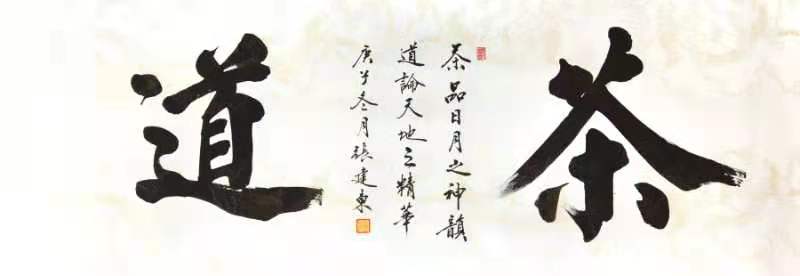 茶
茶品日月之神韻
道論天地之精華
庚子冬月張建東
道